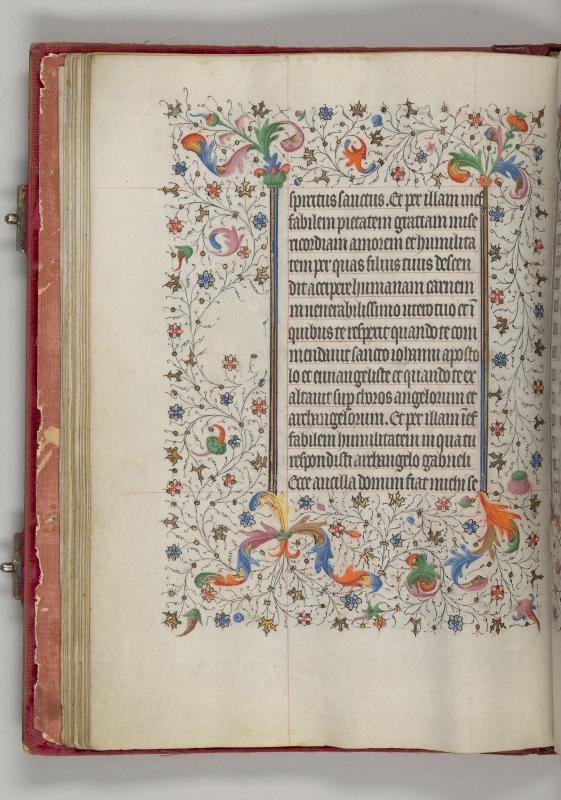 spiritus sanctus. Et per illam inef
fabilem pietatem gratiam mise
ricordiam amorem et humilita
tem per quas filius tuus descen
dit accipere humanam carnem
in venerabilissimo utero tuo et ī
quibus te respexit quando te com
mendavit sancto iohanni aposto
lo et euuangeliste et quando te ex
altavit sup choros angelorum et
archangelorum. Et per illam īef
fabilem humilitatem in qua tu
respondisti archangelo gabrieli
Ecce ancilla domini fiat michi se